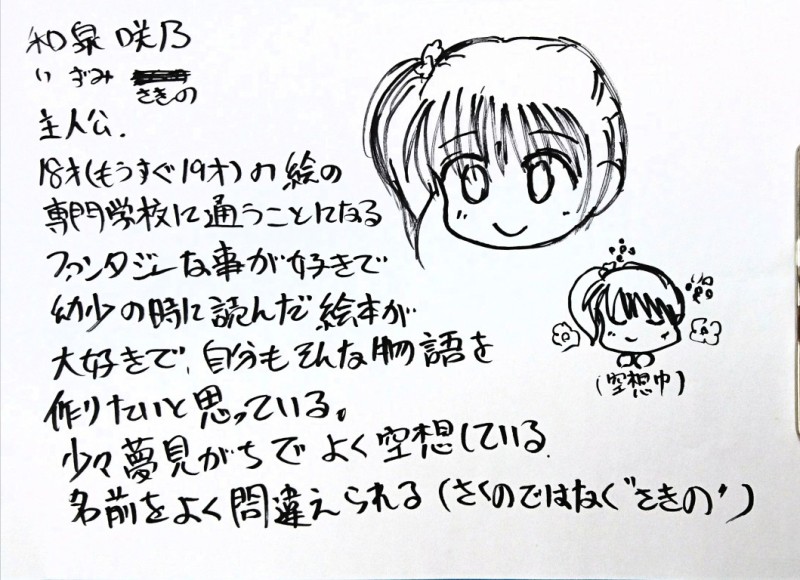 和泉 咲乃
いずみ
さきの
主人公.
18才(もうすぐ19才)の絵の
専門学校に通うことになる
ファンタジーな事が好きで
幼少の時に読んだ絵本が
大好きで、自分もそんな物語を
作りたいと思っている。
少々夢見がちでよく空想している.
名前をよく間違えられる(さくのではなく"さきの")
(空想中)